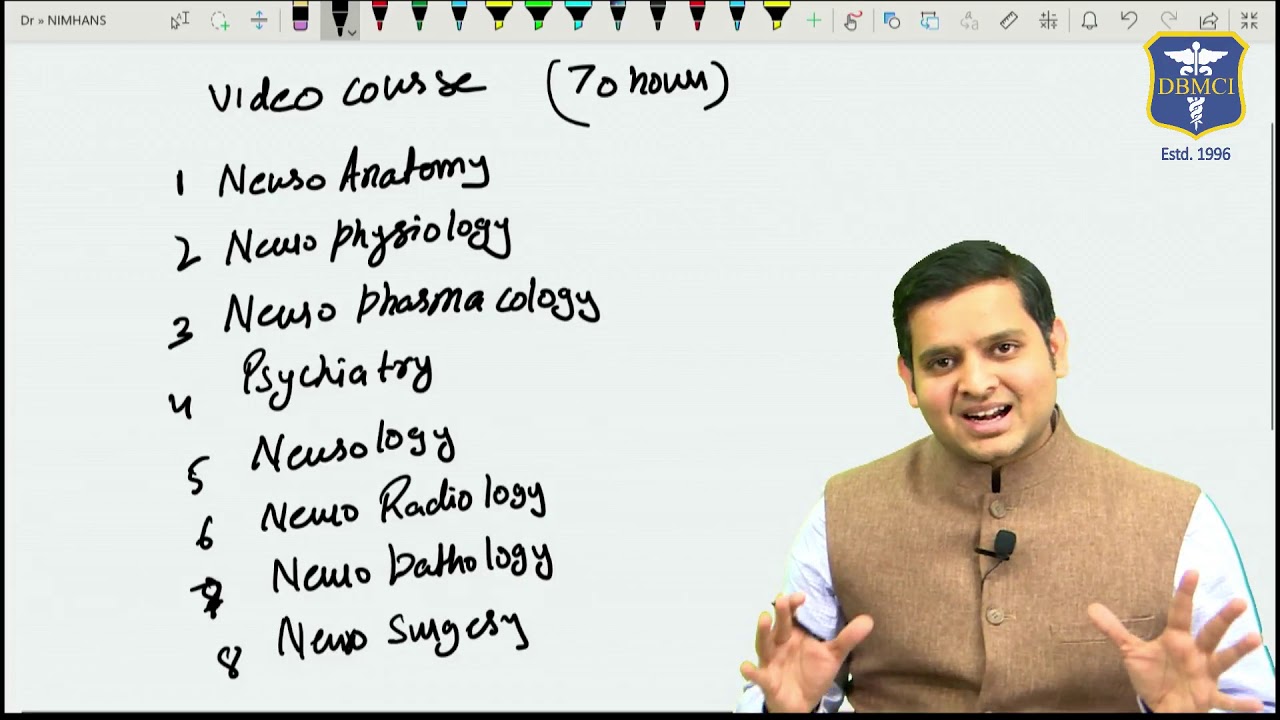 Dr » NIMHANS
DBMCI
Estd. 1996
Video course (70 hours)
1 Neuro Anatomy
2 Neuro physiology
3 Neuro pharmacology
4 Psychiatry
5 Neurology
6 Neuro Radiology
7 Neuro pathology
8 Neuro surgery